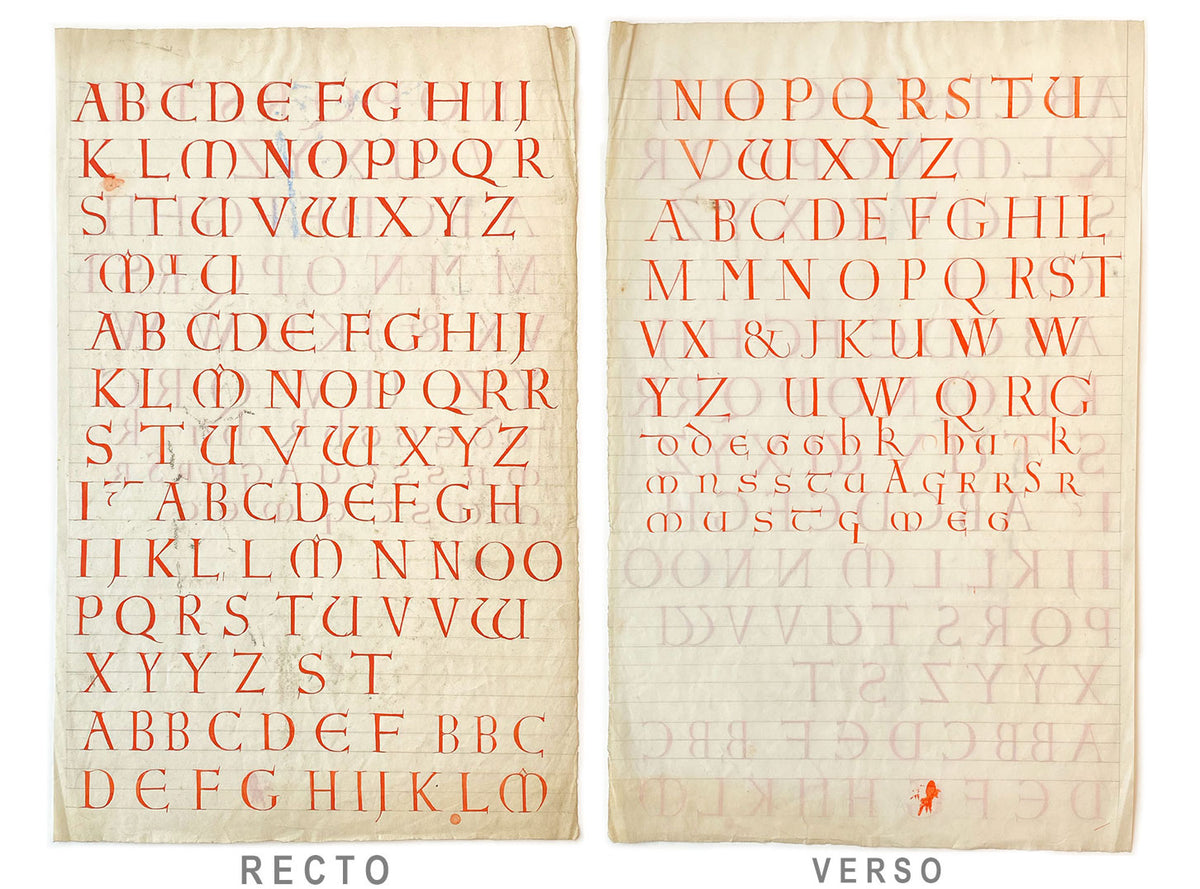 ABCDEFGHIJ
KLMNOPPQR
STUVWXYZ
MU
ABCDEFGHIJ
KLMNOPQRR
STUVWXYZ
IABCDEFGH
IJKLLMNNOO
PQRSTUVVW
XYYZST
ABBCDEFBBC
DEFGHIJKLM
RECTO
NOPQRSTU
VWXYZ
ABCDEFGHIL
MMNOPQRST
VX&JKUWW
YZUWQRG
ꝺdegghkhuk
mnsstuAgRRSR
mustqmeg
VERSO